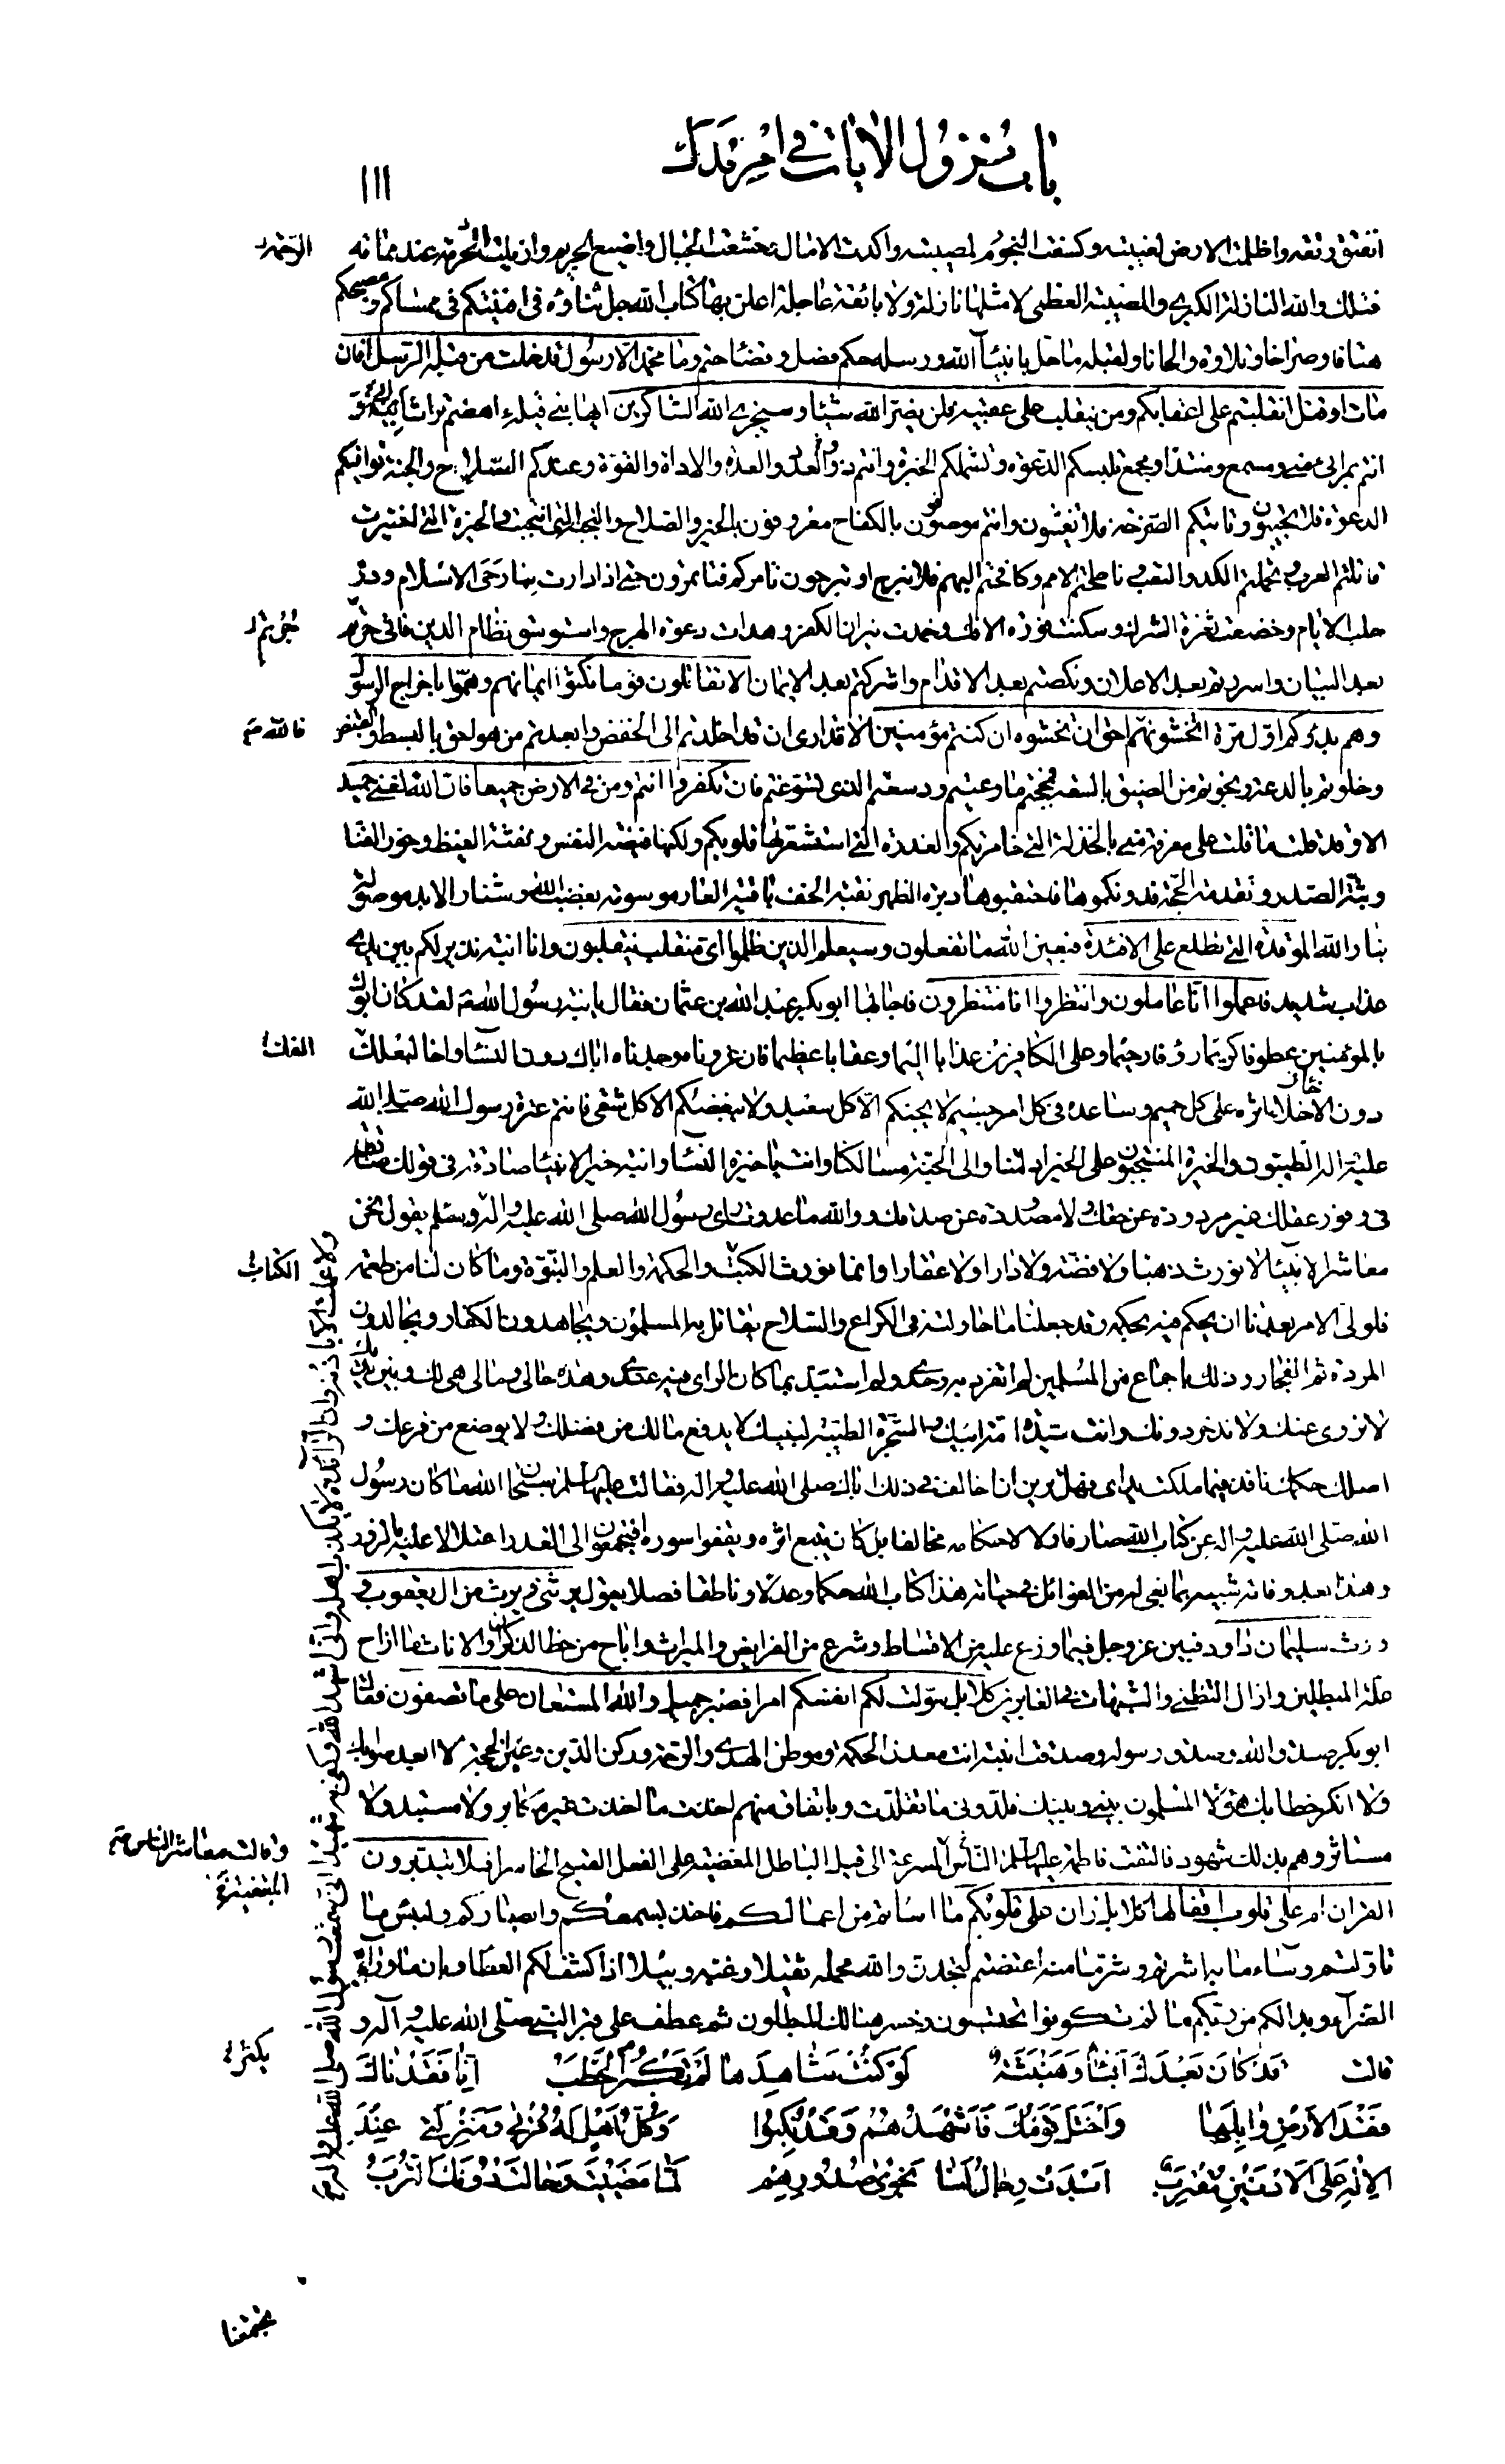 باب نزول الآيات في امر فدك
١١١
انفتق رتقه واظلمت الارض لغيبته وكسفت النجوم لمصيبته واكدت الامال وخشعت الجبال واضيع الحريم وازيلت الحرمة عند مماته
الرحمة
فتلك والله النازلة الكبرى والمصيبة العظمى لا مثلها نازلة ولا بائقة عاجلة اعلن بها كتاب الله جل ثناؤه في افنيتكم في ممساكم ومصبحكم
هتافا وصراخا وتلاوة والحانا ولقبله ما حل بانبياء الله ورسله حكم فصل وقضاء حتم وما محمد الا رسول قد خلت من قبله الرسل افان
مات او قتل انقلبتم على اعقابكم ومن ينقلب على عقبيه فلن يضر الله شيئا وسيجزى الله الشاكرين ايها بنى قيلة ءاهضم تراث ابيه
انتم بمرأى منى ومسمع ومنتدا ومجمع تلبسكم الدعوة وتشملكم الخبرة وانتم ذوو العدد والعدة والاداة والقوة وعندكم السلاح والجنة توافيكم
الدعوة فلا تجيبون وتاتيكم الصرخة فلا تغيثون وانتم موصوفون بالكفاح معروفون بالخير والصلاح والنجبة التى انتجبت والخيرة التى اختيرت
قاتلتم العرب وتحملتم الكد والتعب وناطحتم الامم وكافحتم البهم فلا نبرح او تبرحون نامركم فتاتمرون حتى اذا دارت بنا رحى الاسلام ودر
حلب الايام وخضعت نعرة الشرك وسكنت فورة الافك وخمدت نيران الكفر وهدات دعوة الهرج واستوسق نظام الدين فانى
جرتم
بعد البيان واسررتم بعد الاعلان ونكصتم بعد الاقدام واشركتم بعد الايمان الا تقاتلون قوما نكثوا ايمانهم وهموا باخراج الرسول
وهم بدؤكم اول مرة اتخشونهم احق ان تخشوه ان كنتم مؤمنين الا قد ارى ان قد اخلدتم الى الخفض وابعدتم من هو احق بالبسط والقبض
فالله
وخلوتم بالدعة ونجوتم من الضيق بالسعة فمججتم ما وعيتم ودسعتم الذى تسوغتم فان تكفروا انتم ومن في الارض جميعا فان الله لغنى حميد
الا وقد قلت ما قلت على معرفة منى بالخذلة التى خامرتكم والغدرة التى استشعرتها قلوبكم ولكنها فيضة النفس ونفثة الغيظ وخور القنا
وبثة الصدر وتقدمة الحجة فدونكموها فاحتقبوها دبرة الظهر نقبة الخف باقية العار موسومة بغضب الله وشنار الابد موصولة
بنار الله الموقدة التى تطلع على الافئدة فبعين الله ما تفعلون وسيعلم الذين ظلموا اى منقلب ينقلبون وانا ابنة نذير لكم بين يدى
عذاب شديد فاعملوا انا عاملون وانتظروا انا منتظرون فاجابها ابو بكر عبد الله بن عثمان فقال يا ابنة رسول الله لقد كان ابوك
بالمؤمنين عطوفا كريما رؤفا رحيما وعلى الكافرين عذابا اليما وعقابا عظيما فان عزوناه وجدناه اباك دون النساء واخا لبعلك
الفك
دون الاخلاء اثره على كل حميم وساعده في كل امر جسيم لا يحبكم الا كل سعيد ولا يبغضكم الا كل شقى فانتم عترة رسول الله صلى الله
عليه واله الطيبون والخيرة المنتجبون على الخير ادلتنا والى الجنة مسالكنا وانت يا خيرة النساء وابنة خير الانبياء صادقة في قولك سابقة
في وفور عقلك غير مردودة عن حقك ولا مصدودة عن صدقك ووالله ما عدوت راى رسول الله صلى الله عليه واله وسلم يقول نحن
معاشر الانبياء لا نورث ذهبا ولا فضة ولا دارا ولا عقارا وانما نورث الكتب والحكمة والعلم والنبوة وما كان لنا من طعمة
الكتاب
فلولى الامر بعدنا ان يحكم فيه بحكمه وقد جعلنا ما حاولته في الكراع والسلاح يقاتل به المسلمون ويجاهدون الكفار ويجالدون
المردة ثم الفجار وذلك باجماع من المسلمين لم اتفرد به وحدى ولم استبد بما كان الراى فيه عندى وهذه حالى ومالى هى لك وبين يديك
لا نزوى عنك ولا ندخر دونك وانت سيدة امة ابيك والشجرة الطيبة لبنيك لا يدفع مالك من فضلك ولا يوضع من فرعك و
اصلك حكمك نافذ فيما ملكت يداى فهل ترين ان اخالف في ذلك اباك صلى الله عليه واله فقالت عليها السلم سبحان الله ما كان رسول
الله صلى الله عليه واله عن كتاب الله صارفا ولا لاحكامه مخالفا بل كان يتبع اثره ويقفوا سوره افتجمعون الى الغدر اعتلالا عليه بالزور
وهذا بعد وفاته شبيه بما بغى له من الغوائل في حياته هذا كتاب الله حكما وعدلا وناطقا فصلا يقول يرثنى ويرث من ال يعقوب و
ورث سليمان داود فبين عز وجل فيما وزع عليه من الاقساط وشرع من الفرايض والميراث واباح من حظ الذكران والاناث ما ازاح
علة المبطلين وازال التظنى والشبهات في الغابرين كلا بل سولت لكم انفسكم امرا فصبر جميل والله المستعان على ما تصفون فقال
ابو بكر صدق الله وصدق رسوله وصدقت ابنته انت معدن الحكمة وموطن الهدى والرحمة وركن الدين وعين الحجة لا ابعد صوابك
ولا انكر خطابك هؤلاء المسلمون بينى وبينك قلدونى ما تقلدت وباتفاق منهم اخذت ما اخذت غير مكابر ولا مستبد ولا
مستاثر وهم بذلك شهود فالتفت فاطمة عليها السلم الى الناس المسرعة الى قيل الباطل المغضية على الفعل القبيح الخاسر افلا يتدبرون
وقالت معاشر الناس
القران ام على قلوب اقفالها كلا بل ران على قلوبكم ما اساتم من اعمالكم فاخذ بسمعكم وابصاركم ولبئس ما
تاولتم وساء ما به اشرتم وشر ما منه اعتضتم لتجدن والله محمله ثقيلا وغبه وبيلا اذا كشف لكم الغطاء وبان ما وراءه
الضراء وبدا لكم من ربكم ما لم تكونوا تحتسبون وخسر هنالك المبطلون ثم عطف على قبر النبى صلى الله عليه وآله و
قالت قد كان بعدك انباء وهنبثة لو كنت شاهدها لم تكثر الخطب انا فقدناك
يكثر
فقد الارض وابلها واختل قومك فاشهدهم وقد نكبوا وكل اهل له قربى ومنزلة عند
الاله على الادنين مقترب ابدت رجال لنا نجوى صدورهم لما مضيت وحالت دونك الترب
تجهمتنا